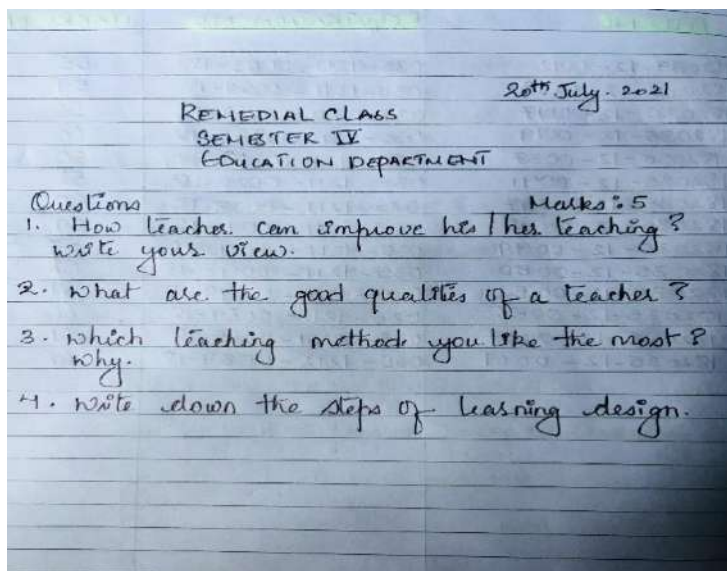 20th July. 2021
REMEDIAL CLASS
SEMESTER IV
EDUCATION DEPARTMENT
Questions Marks: 5
1. How teacher can improve his/her teaching?
write your view.
2. What are the good qualities of a teacher?
3. Which teaching method you like the most?
why.
4. Write down the steps of learning design.